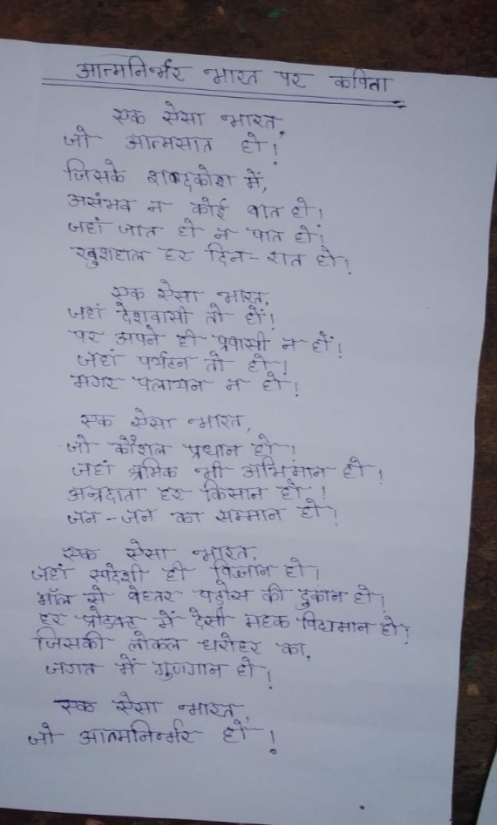 आत्मनिर्भर भारत पर कविता
एक ऐसा भारत,
जो आत्मसात हो!
जिसके शब्दकोश में,
असंभव न कोई बात हो!
जहां जात हो न पात हो!
खुशहाल हर दिन-रात हो!
एक ऐसा भारत,
जहां देशवासी तो हों!
पर अपने ही प्रवासी न हों!
जहां पर्यटन तो हो!
मगर पलायन न हो!
एक ऐसा भारत,
जो कौशल प्रधान हो!
जहां श्रमिक भी अभिमान हो!
अन्नदाता हर किसान हो!
जन-जन का सम्मान हो!
एक ऐसा भारत,
जहां स्वदेशी ही विज्ञान हो!
मॉल से बेहतर पड़ोस की दुकान हो!
हर प्रोडक्ट में देसी महक विद्यमान हो!
जिसकी लोकल धरोहर का,
जगत में गुणगान हो!
एक ऐसा भारत,
जो आत्मनिर्भर हो!